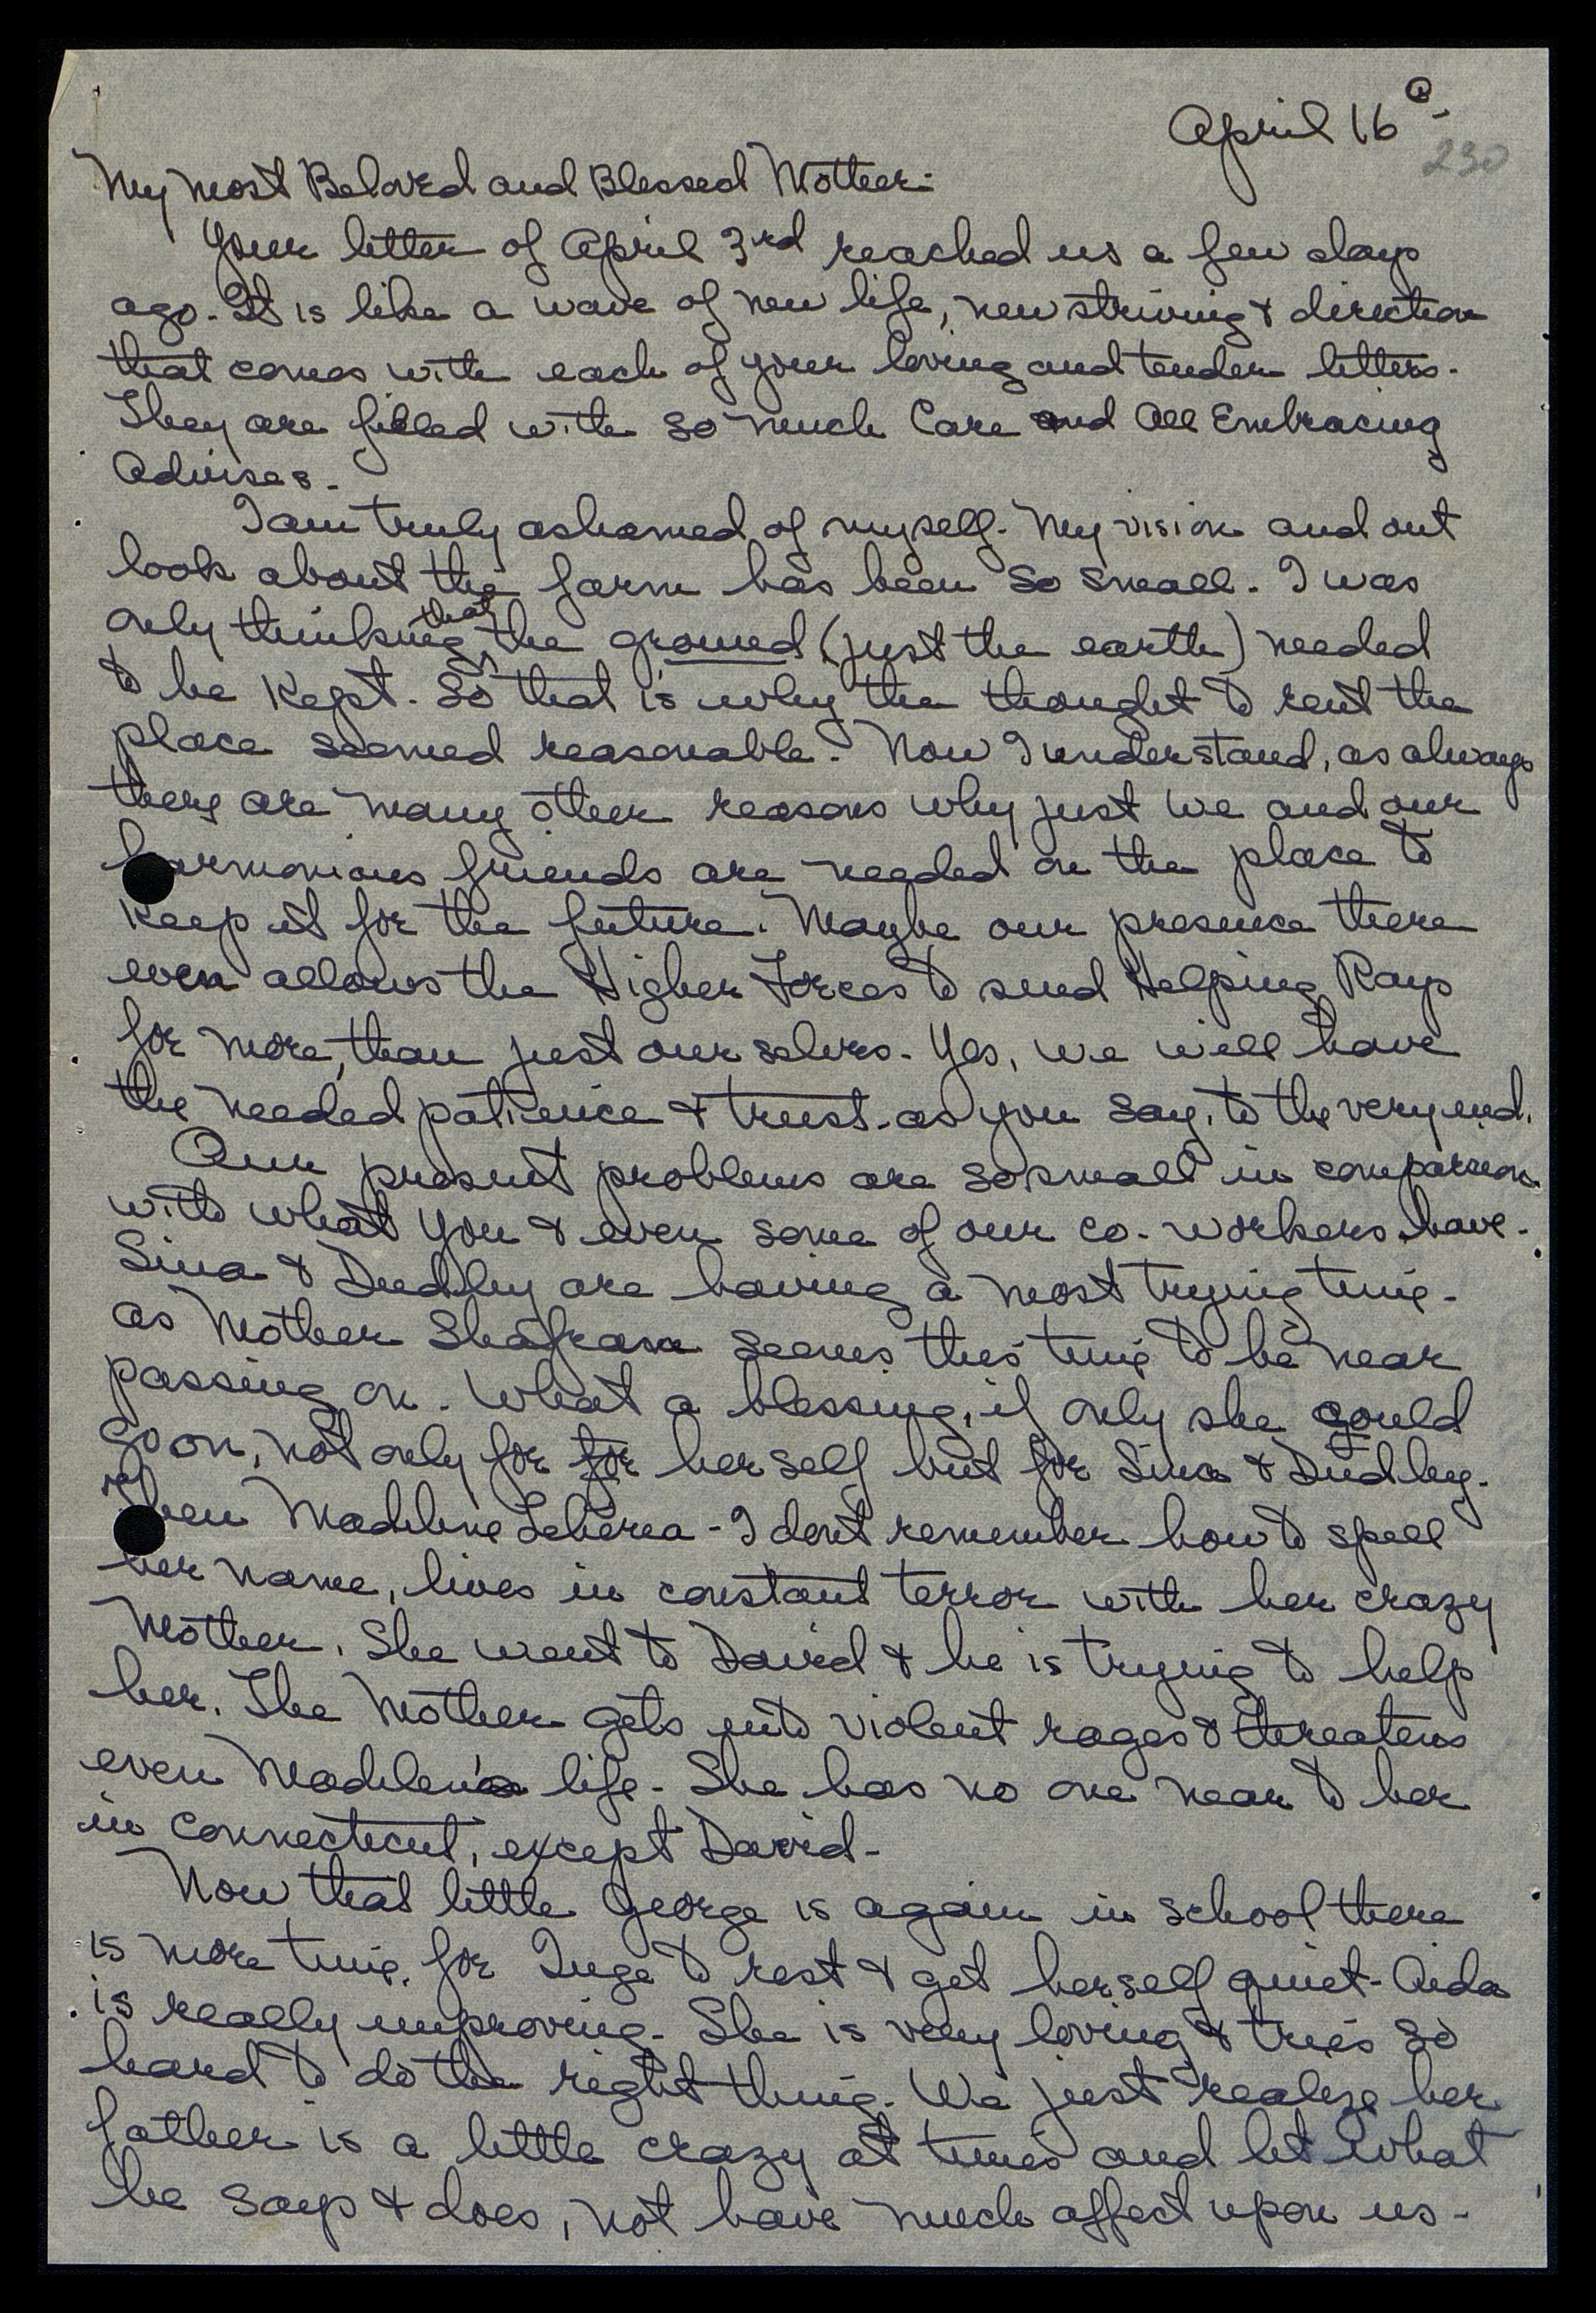 April 16
230
My most Beloved and Blessed Mother:
Your letter of April 3rd reached us a few days
ago. It is like a wave of new life, new striving & direction
that comes with each of your loving and tender letters.
They are filled with so much Care and All Embracing
Advises.
I am truly ashamed of myself. My vision and out
look about the farm has been so small. I was
only thinking that the ground (just the earth) needed
to be kept. So that is why the thought to rent the
place seemed reasonable. Now I understand, as always
there are many other reasons why just we and our
harmonious friends are needed on the place to
keep it for the future. Maybe our presence there
even allows the Higher Forces to send Helping Rays
for more, than just our selves. Yes, we will have
the needed patience & trust. as you say, to the very end.
Our present problems are so small in comparison
with what you & even some of our co-workers have.
Sina & Dudley are having a most trying time.
as Mother Shafran seems this time to be near
passing on. What a blessing, if only she could
go on, not only for for herself but for Sina & Dudley.
Then Madeline Leherea - I dont remember how to spell
her name, lives in constant terror with her crazy
Mother. She went to David & he is trying to help
her. The Mother gets into violent rages & threatens
even Madelen's life. She has no one near to her
in Connecticut, except David-
Now that little George is again in school there
is more time for Inge to rest & get herself quiet. Aida
is really improving. She is very loving & tries so
hard to do the right thing. We just realize her
father is a little crazy at times and let what
he says & does, not have much affect upon us-